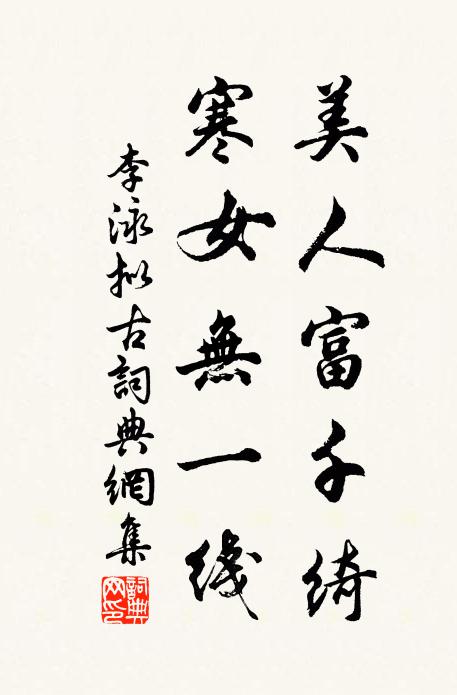 美人富千綺
寒女無一綫
李泳拟古詞典網集
詞典网印